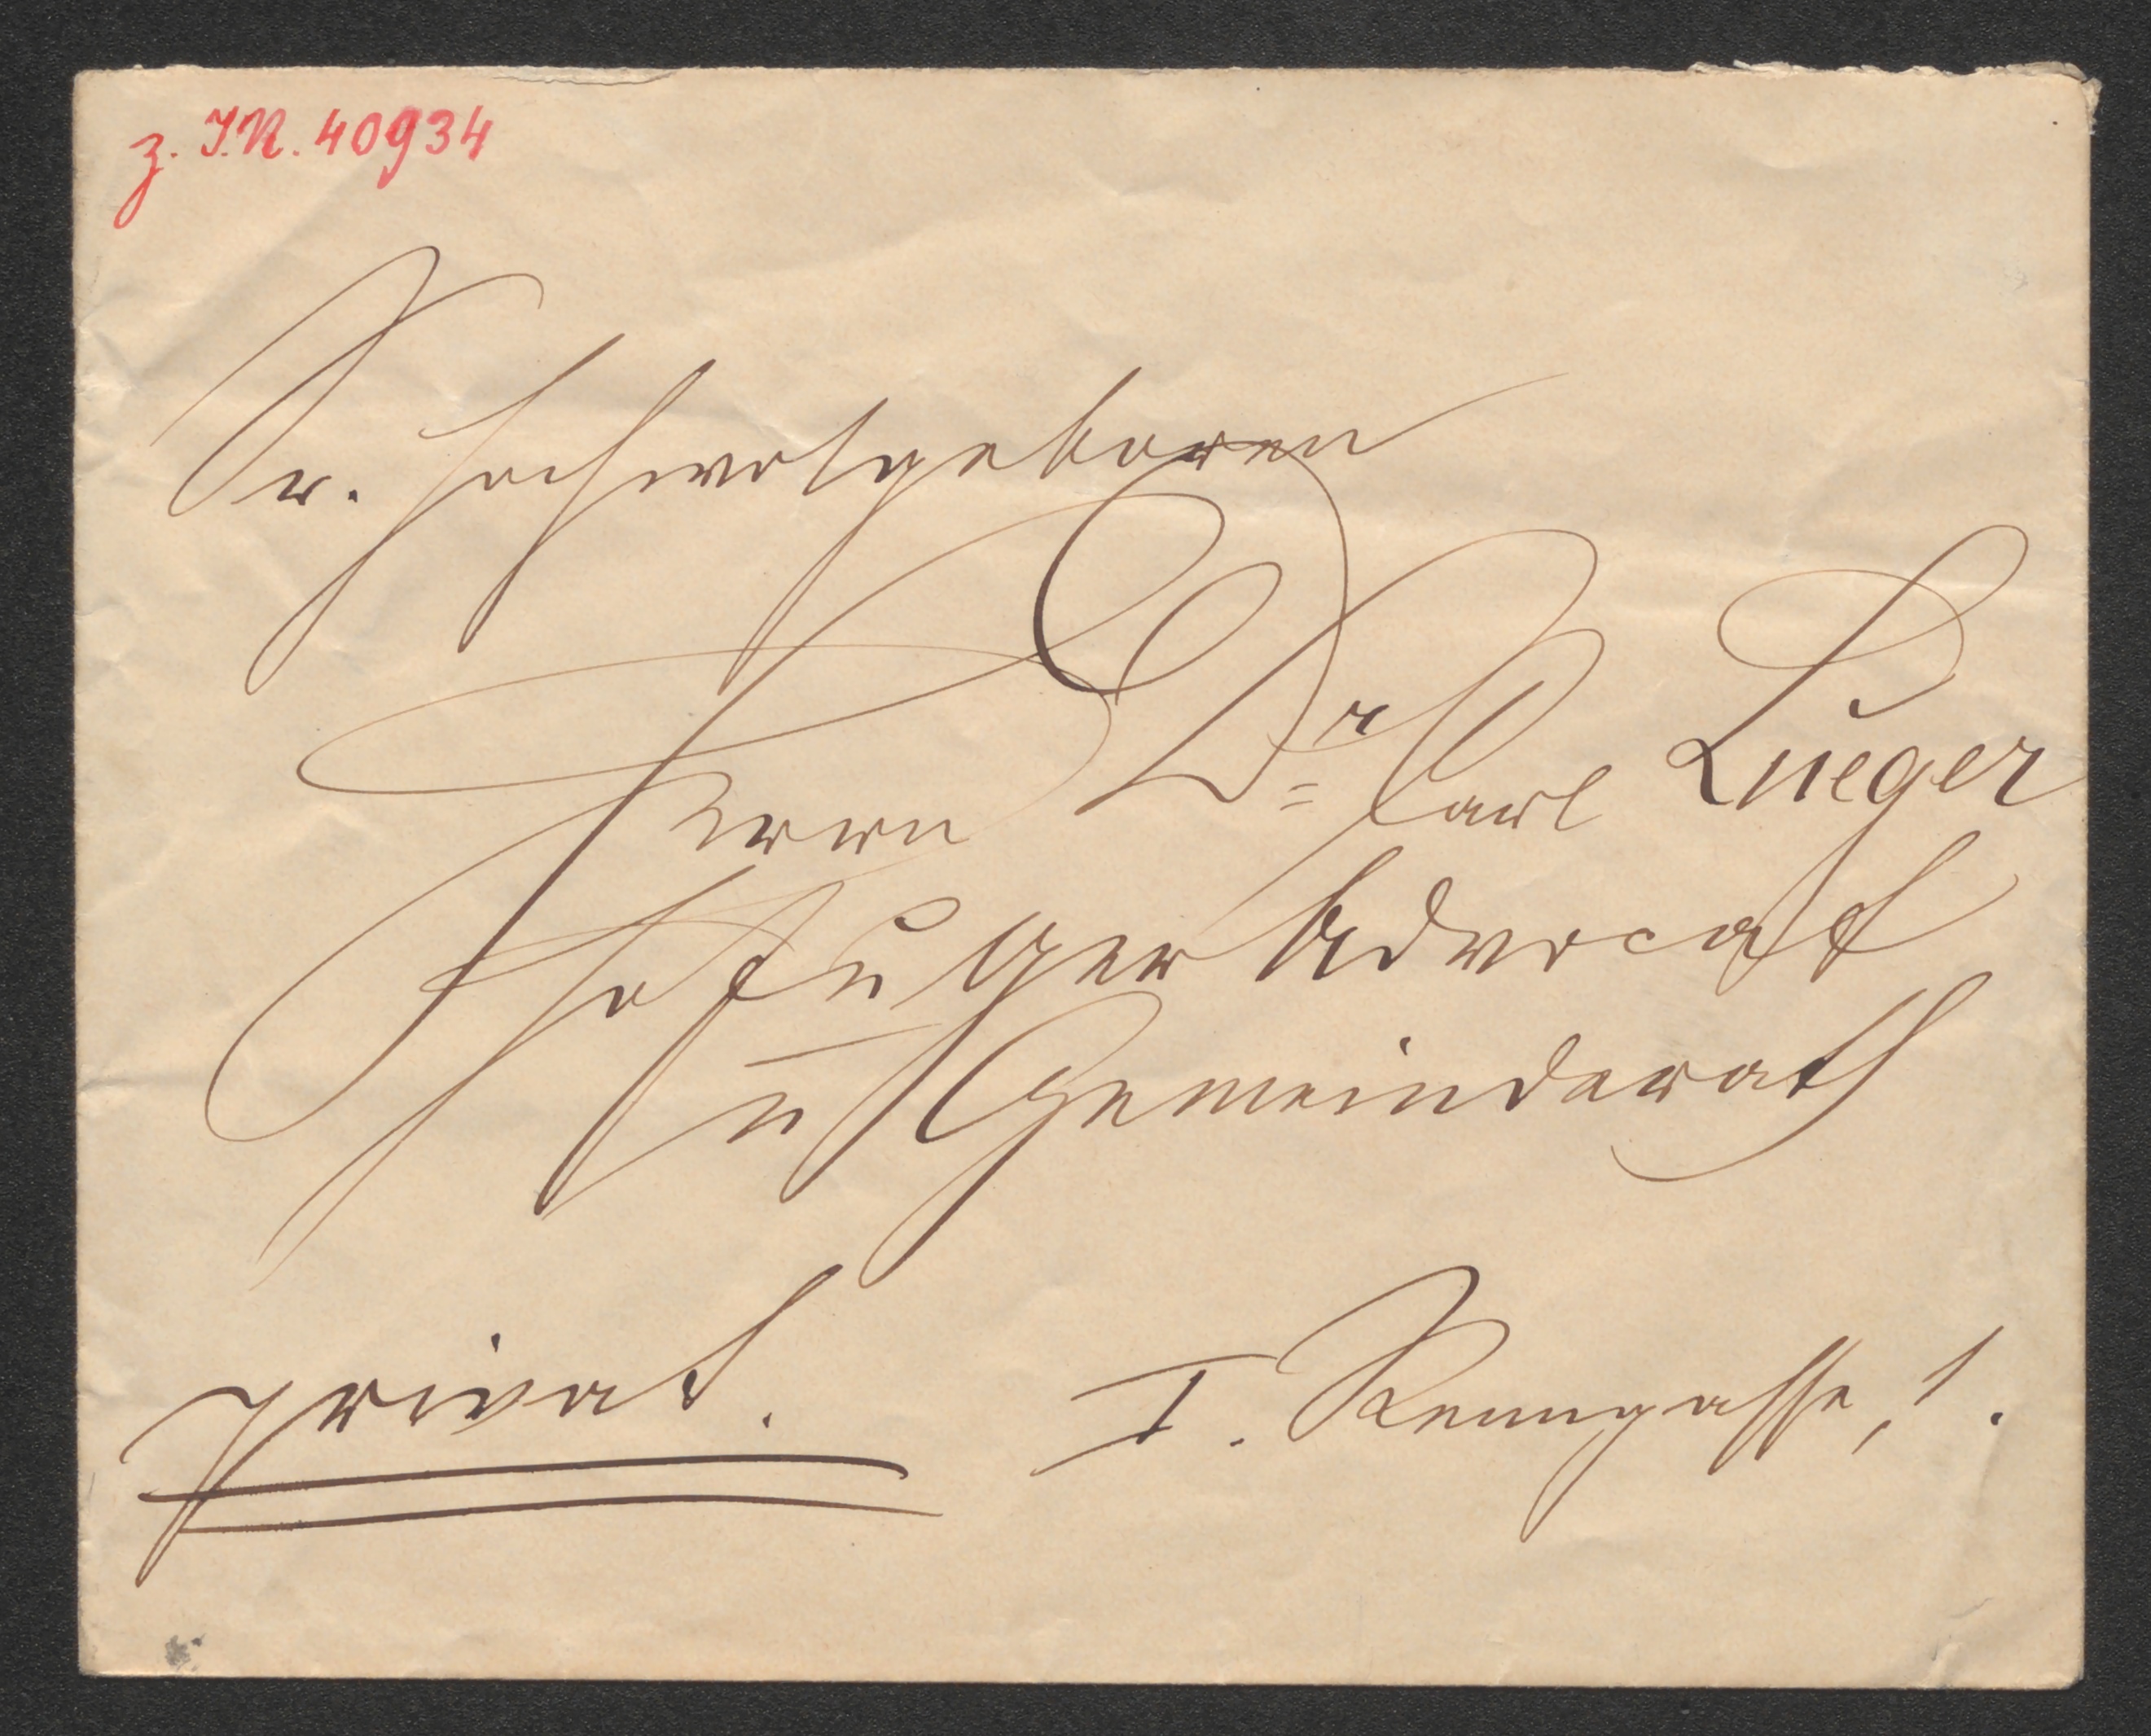 z. I.N. 40934
Sr. Hochwolgeboren
Herrn Dr Carl Lueger
Hof u Ger Advocat
u Gemeinderath
privat. I. Renngasse, 1.